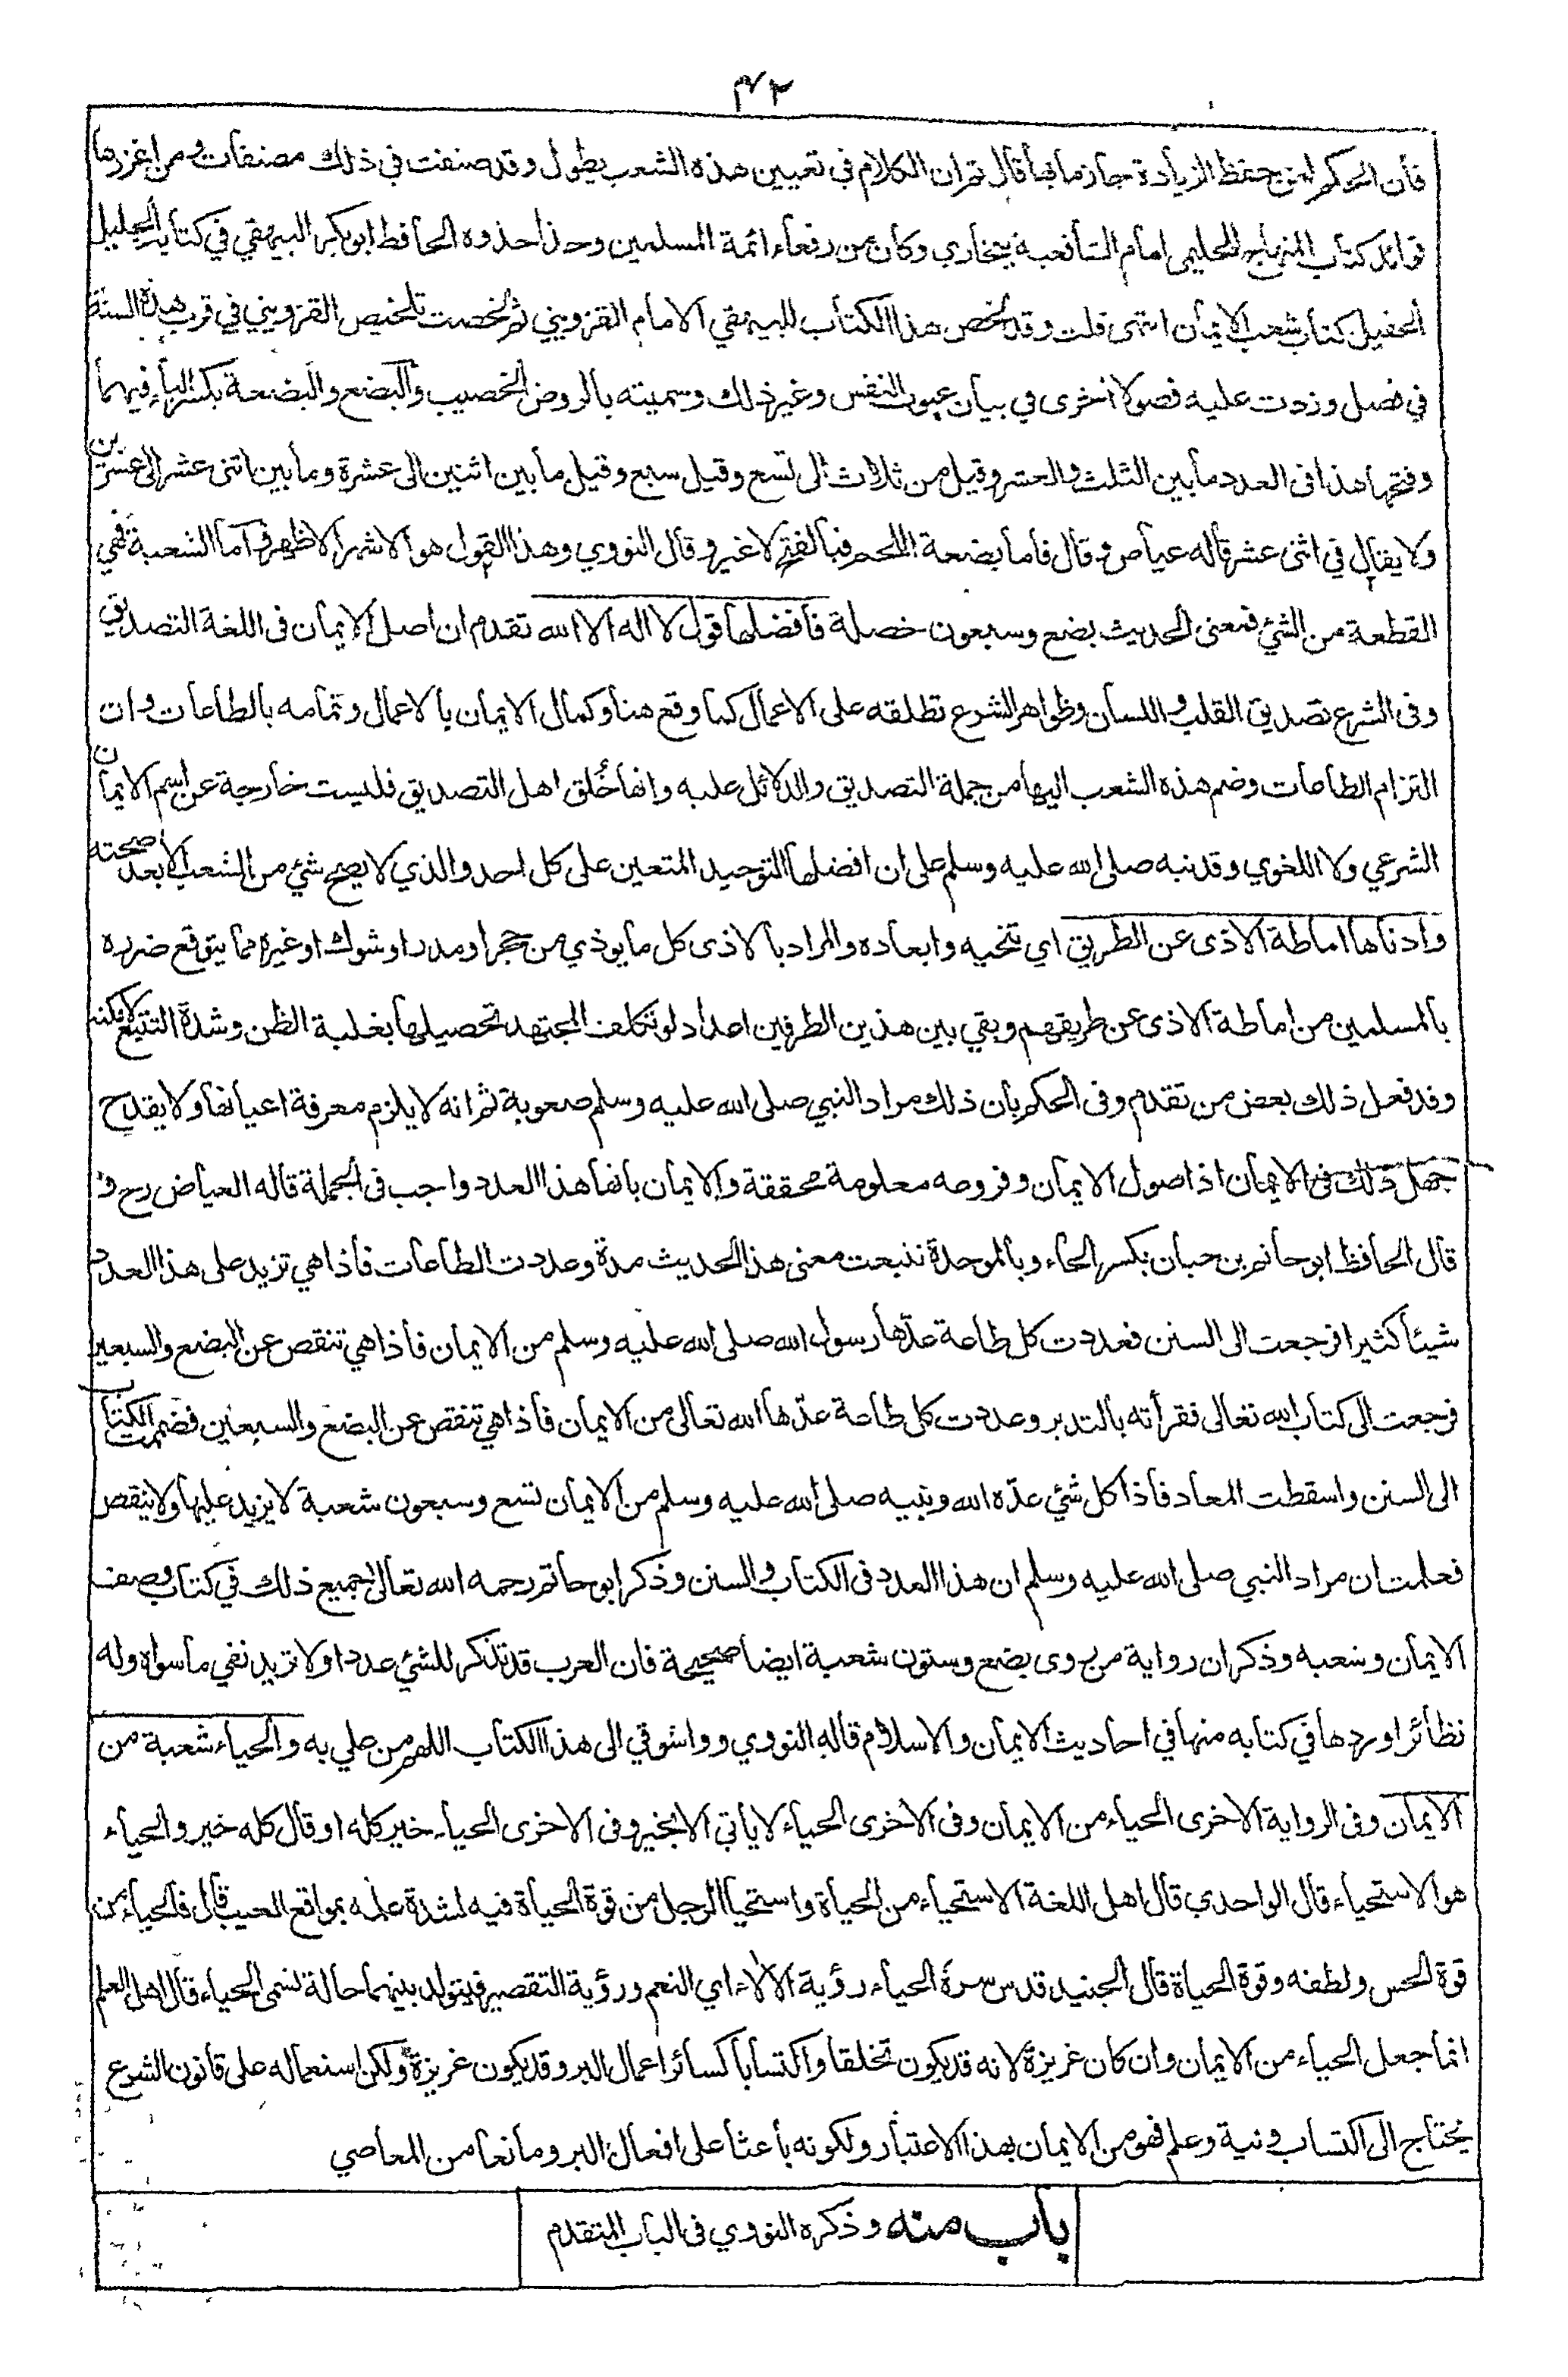 ٤٢
فأن الحكم لمن حفظ الزيادة جازما بها قال ثم ان الكلام في تعيين هذه الشعب يطول وقد صنفت في ذلك مصنفات ومن اغزرها
فوائد كتاب المنهاج للحليمى امام الشافعية ببخاري وكان من رفعاء ائمة المسلمين وحذا حذوه الحافظ ابو بكر البيهقي في كتابه الجليل
الحفيل كتاب شعب الايمان انتهى قلت وقد لخص هذا الكتاب للبيهقي الامام القزويني ثم لخصت تلخيص القزويني في قرب هذه السنة
في فصل وزدت عليه فصولا اخرى في بيان عيوب النفس وغير ذلك وسميته بالروض الخصيب والبضع والبضعة بكسر الباء فيهما
وفتحها هذا فى العدد مابين الثلث والعشر وقيل من ثلاث الى تسع وقيل سبع وقيل مابين اثنين الى عشرة ومابين اثنى عشر الى عشرين
ولا يقال في اثنى عشر قاله عياض وقال فاما بضعة اللحم فبالفتح لا غير وقال النووي وهذا القول هو الاشهر الاظهر واما الشعبة فهي
القطعة من الشئ فمعنى الحديث بضع وسبعون خصلة فأفضلها قول لا اله الا الله تقدم ان اصل الايمان فى اللغة التصديق
وفى الشرع تصديق القلب واللسان وظواهر الشرع تطلقه على الاعمال كما وقع هنا وكمال الايمان بالاعمال وتمامه بالطاعات وان
التزام الطاعات وضم هذه الشعب اليها من جملة التصديق والدلائل عليه وانها خُلق اهل التصديق فليست خارجة عن اسم الايمان
الشرعي ولا اللغوي وقد نبه صلى الله عليه وسلم على ان افضلها التوحيد المتعين على كل احد والذي لا يصح شئ من الشعب الا بعد صحته
وأدناها اماطة الاذى عن الطريق اي تنحيه وابعاده والمراد بالاذى كل ما يوذي من حجر او مدر او شوك او غيره مما يتوقع ضرره
بالمسلمين من اماطة الاذى عن طريقهم وبقي بين هذين الطرفين اعداد لو تتكلف المجتهد تحصيلها بغلبة الظن وشدة التتبع لامكنه
وقد فعل ذلك بعض من تقدم وفى الحكم بان ذلك مراد النبي صلى الله عليه وسلم صعوبة ثم انه لا يلزم معرفة اعيانها ولا يقدح
جهل ذلك فى الايمان اذ اصول الايمان وفروعه معلومة محققة والايمان بانها هذا العدد واجب فى الجملة قاله العياض رح و
قال الحافظ ابو حاتم بن حبان بكسر الحاء وبالموحدة تتبعت معنى هذا الحديث مدة وعددت الطاعات فأذا هي تزيد على هذا العدد
شيئا كثيرا فرجعت الى السنن فعددت كل طاعة عدّها رسول الله صلى الله عليه وسلم من الايمان فأذا هي تنقص عن البضع والسبعين
فرجعت الى كتاب الله تعالى فقرأته بالتدبر وعددت كل طاعة عدّها الله تعالى من الايمان فأذا هي تنقص عن البضع والسبعين فضممت الكتاب
الى السنن واسقطت المعاد فأذا كل شئ عدّه الله ونبيه صلى الله عليه وسلم من الايمان تسع وسبعون شعبة لا يزيد عليها ولا ينقص
فعلمت ان مراد النبي صلى الله عليه وسلم ان هذا العدد فى الكتاب والسنن وذكر ابو حاتم رحمه الله تعالى جميع ذلك في كتاب وصف
الايمان وشعبه وذكر ان رواية من روى بضع وستون شعبة ايضا صحيحة فان العرب قد تذكر للشئ عددا ولا تريد نفي ما سواه وله
نظائر اوردها في كتابه منها في احاديث الايمان والاسلام قاله النووي وواشوقي الى هذا الكتاب اللهم من علي به والحياء شعبة من
الايمان وفى الرواية الاخرى الحياء من الايمان وفى الاخرى الحياء لا يأتي الا بخير وفى الاخرى الحياء خير كله او قال كله خير والحياء
هو الاستحياء قال الواحدي قال اهل اللغة الاستحياء من الحياة واستحيا الرجل من قوة الحياة فيه لشدة علمه بمواقع العيب قال فالحياء من
قوة الحس ولطفه وقوة الحياة قال الجنيد قدس سره الحياء رؤية الآلاء اي النعم ورؤية التقصير فيتولد بينهما حالة تسمى الحياء قال اهل العلم
انما جعل الحياء من الايمان وان كان غريزة لانه قد يكون تخلقا واكتسابا كسائر اعمال البر وقد يكون غريزة ولكن استعماله على قانون الشرع
يحتاج الى اكتساب ونية وعلم فهو من الايمان بهذا الاعتبار ولكونه باعثا على افعال البر ومانعا من المعاصي
باب منه وذكره النووي فى الباب المتقدم